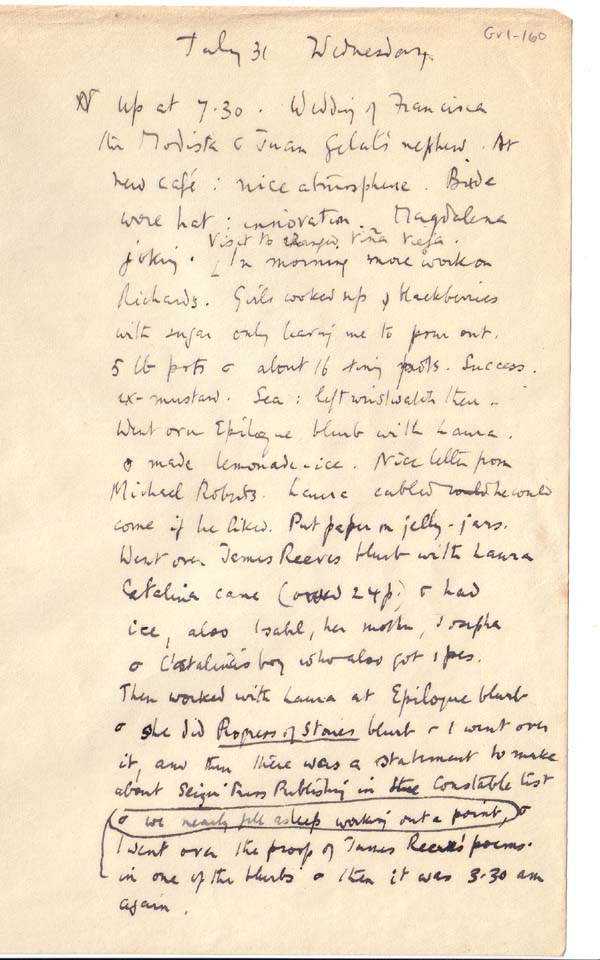 Gv1-160
July 31 Wednesday.
Up at 7.30. Wedding of Francisca
the Modista & Juan Gelat's nephew. At
new café: nice atmosphere. Bride
wore hat: innovation. Magdalena
Visit to viña vieja.
joking. In morning more work on
Richards. Girls cooked up blackberries
with sugar only leaving me to pour out.
5 lb pots & about 16 tiny pots. Success.
ex-mustard. Sea: left wristwatch there.
Went over Epilogue blurb with Laura.
& made lemonade-ice. Nice letter from
Michael Roberts. Laura cabled he could
come if he liked. Put paper on jelly-jars.
Went over James Reeves blurb with Laura
Catalina came (owed 24p.) & had
ice, also Isabel, her mother, Josepha
& Catalina's boy who also got 1 pes.
Then worked with Laura at Epilogue blurb
& she did Progress of Stories blurb & I went over
it, and then there was a statement to make
about Seizin Press Publishing in Constable list
& we nearly fell asleep working out a point, &
I went over the proof of James Reeves' poems.
in one of the blurbs & then it was 3.30 am
again.